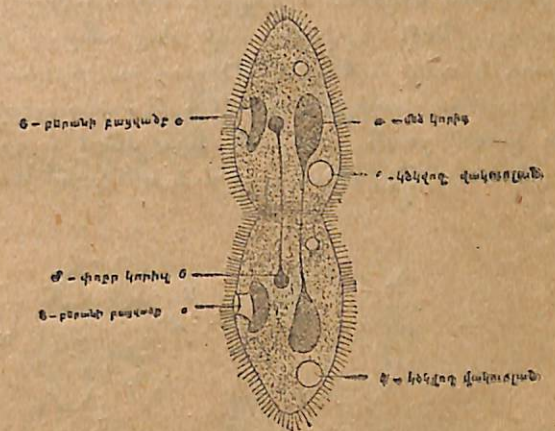 Ե – բերանի բացվածք
մեծ կորիզ
կծկվող վակուոլան
փոքր կորիզ
բերանի բացվածք
կծկվող վակուոլան